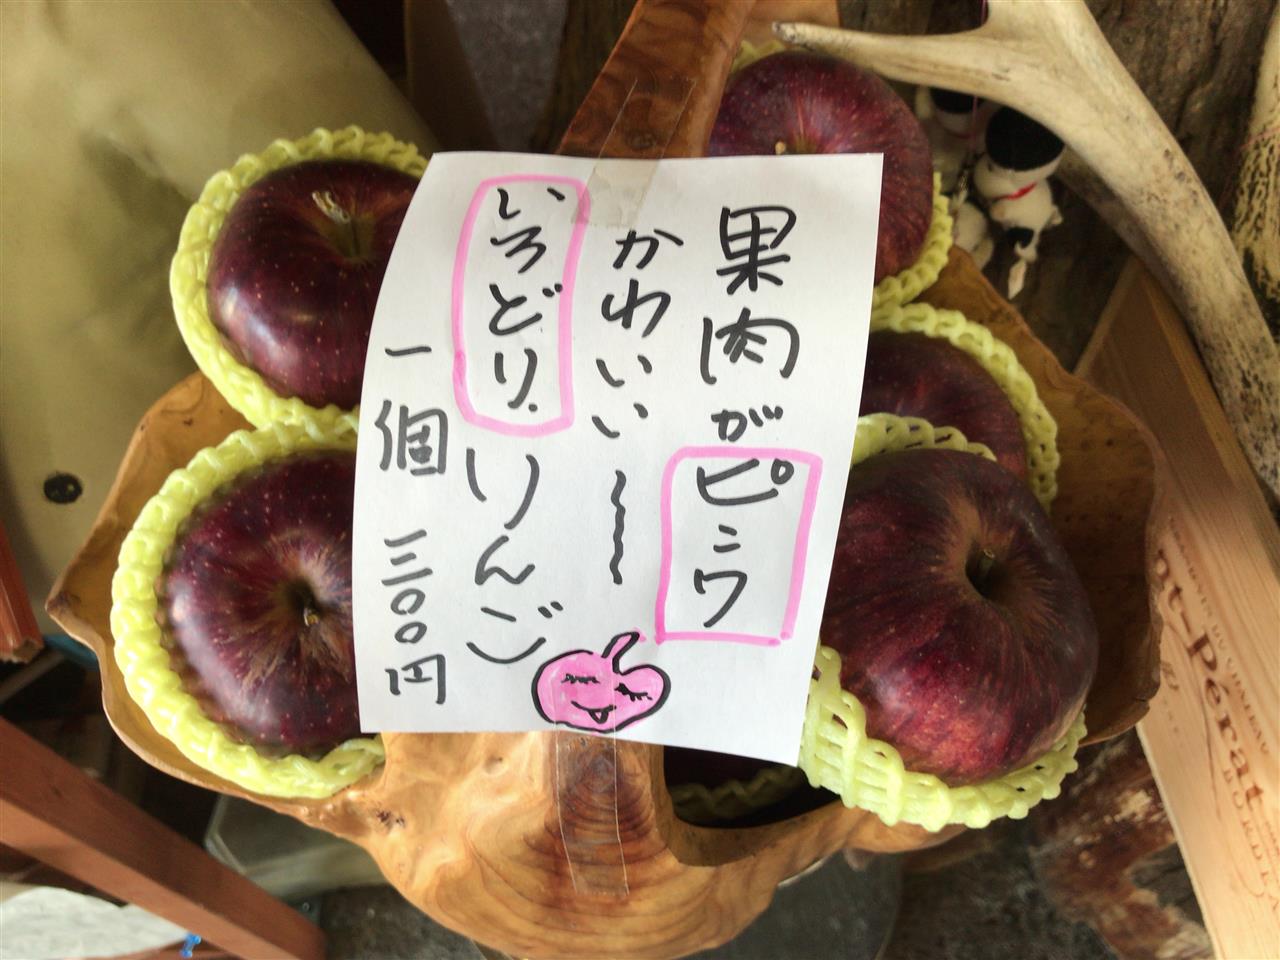 果肉がピンク
かわいい〜
いろどり
りんご
一個 三〇〇円